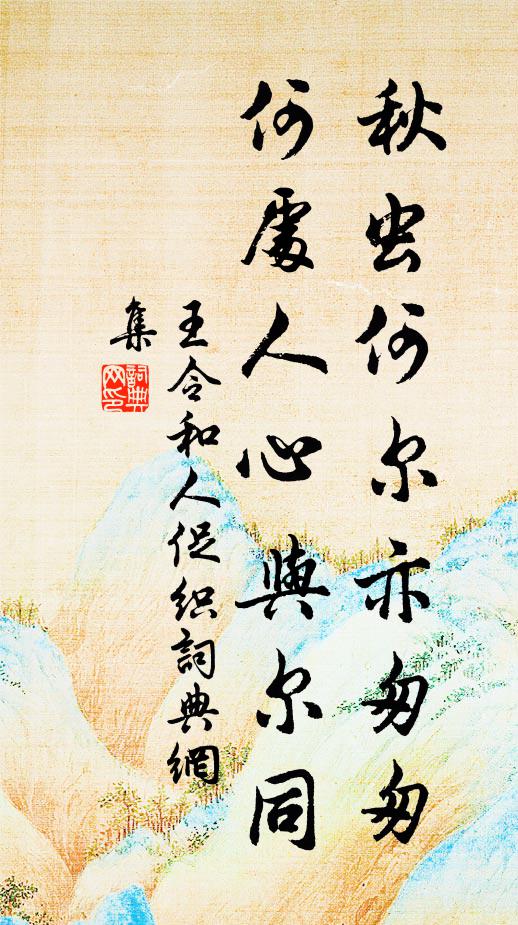 秋虫何尔亦匆匆
何處人心與尔同
王令和人促织詞典網
集
詞典网印